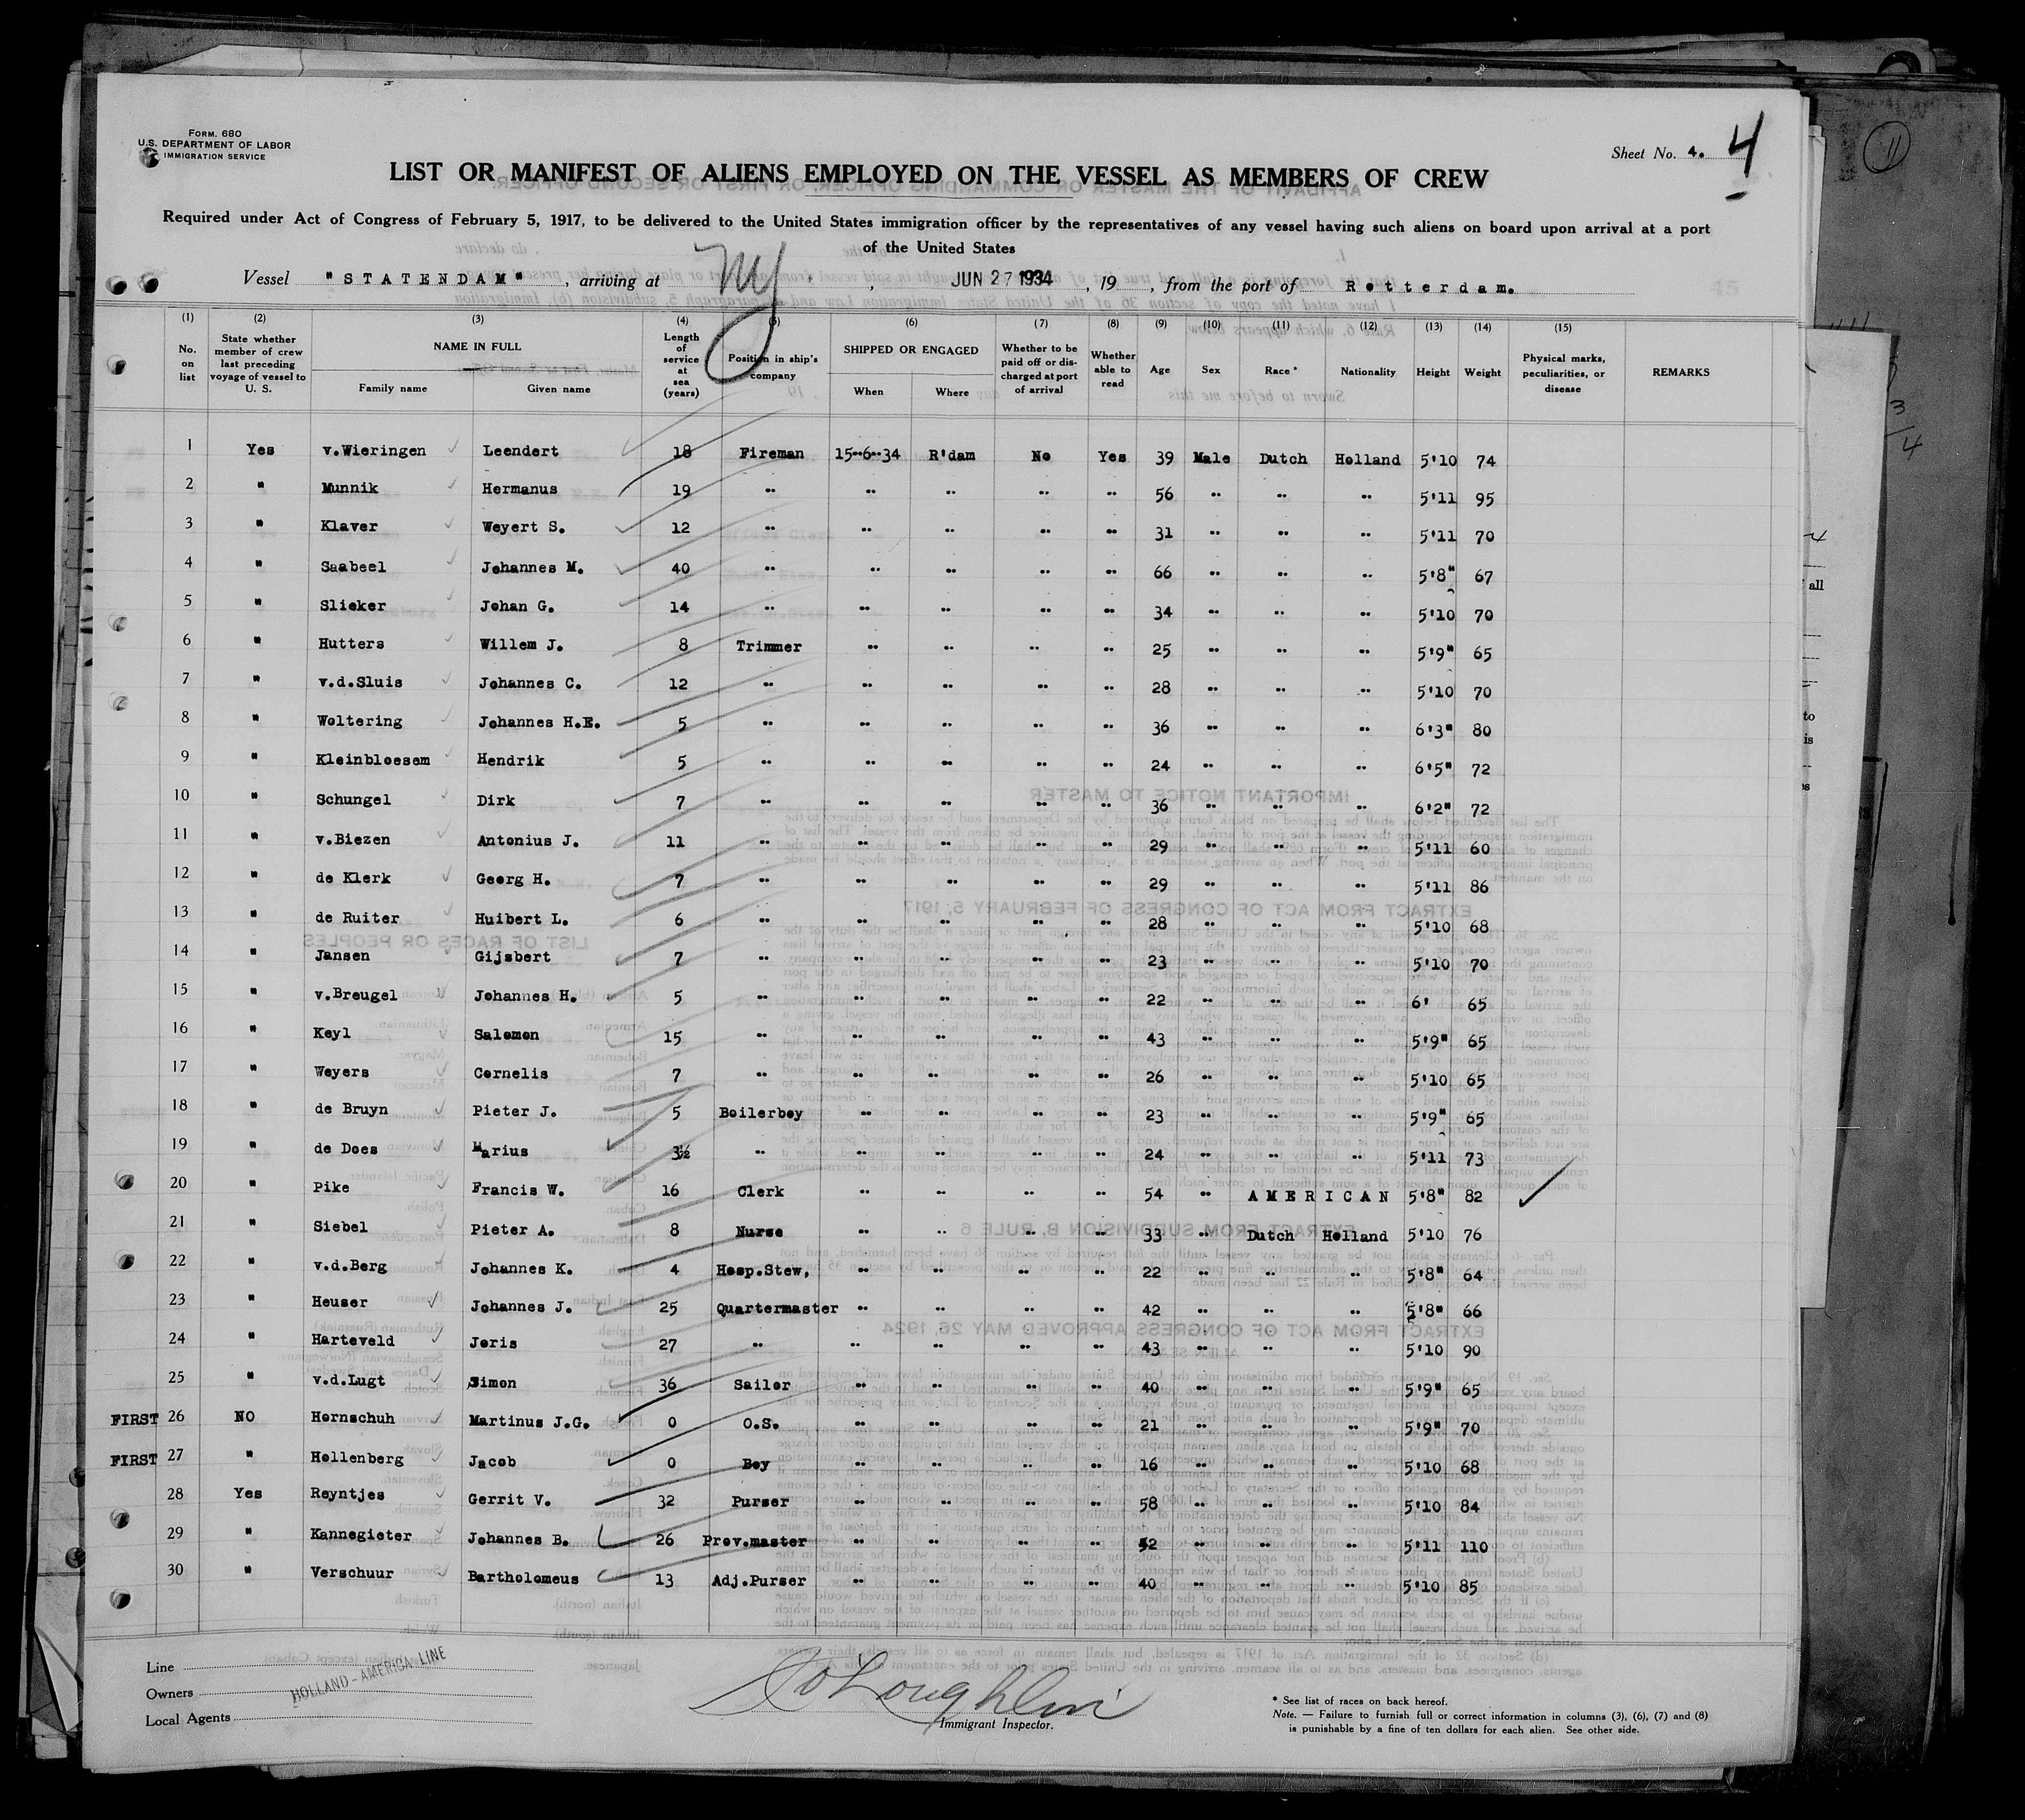 FORM. 680
U.S. DEPARTMENT OF LABOR
IMMIGRATION SERVICE
Sheet No. 4. 4
LIST OR MANIFEST OF ALIENS EMPLOYED ON THE VESSEL AS MEMBERS OF CREW
Required under Act of Congress of February 5, 1917, to be delivered to the United States immigration officer by the representatives of any vessel having such aliens on board upon arrival at a port
of the United States
Vessel "STATENDAM", arriving at NY, JUN 27 1934, 19 , from the port of Rotterdam.
(1) (2) (3) (4) (5) (6) (7) (8) (9) (10) (11) (12) (13) (14) (15)
No. on list | State whether member of crew last preceding voyage of vessel to U. S. | NAME IN FULL Family name Given name | Length of service at sea (years) | Position in ship's company | SHIPPED OR ENGAGED When Where | Whether to be paid off or discharged at port of arrival | Whether able to read | Age | Sex | Race * | Nationality | Height | Weight | Physical marks, peculiarities, or disease | REMARKS
1 Yes v.Wieringen Leendert 18 Fireman 15-6-34 R'dam No Yes 39 Male Dutch Holland 5'10 74
2 " Munnik Hermanus 19 " " " " " 56 " " " 5'11 95
3 " Klaver Weyert S. 12 " " " " " 31 " " " 5'11 70
4 " Saabeel Johannes M. 40 " " " " " 66 " " " 5'8" 67
5 " Slieker Johan G. 14 " " " " " 34 " " " 5'10 70
6 " Hutters Willem J. 8 Trimmer " " " " 25 " " " 5'9" 65
7 " v.d.Sluis Johannes C. 12 " " " " " 28 " " " 5'10 70
8 " Woltering Johannes H.E. 5 " " " " " 36 " " " 6'3" 80
9 " Kleinbloesem Hendrik 5 " " " " " 24 " " " 6'5" 72
10 " Schungel Dirk 7 " " " " " 36 " " " 6'2" 72
11 " v.Biezen Antonius J. 11 " " " " " 29 " " " 5'11 60
12 " de Klerk Georg H. 7 " " " " " 29 " " " 5'11 86
13 " de Ruiter Huibert L. 6 " " " " " 28 " " " 5'10 68
14 " Jansen Gijsbert 7 " " " " " 23 " " " 5'10 70
15 " v.Breugel Johannes H. 5 " " " " " 22 " " " 6' 65
16 " Keyl Salomon 15 " " " " " 43 " " " 5'9" 65
17 " Weyers Cornelis 7 " " " " " 26 " " " 5'10 65
18 " de Bruyn Pieter J. 5 Boilerboy " " " " 23 " " " 5'9" 65
19 " de Does Marius 3½ " " " " " 24 " " " 5'11 73
20 " Pike Francis W. 16 Clerk " " " " 54 " AMERICAN 5'8" 82
21 " Siebel Pieter A. 8 Nurse " " " " 33 " Dutch Holland 5'10 76
22 " v.d.Berg Johannes K. 4 Hosp.Stew, " " " " 22 " " " 5'8" 64
23 " Heuser Johannes J. 25 Quartermaster " " " " 42 " " " 5'8" 66
24 " Harteveld Joris 27 " " " " " 43 " " " 5'10 90
25 " v.d.Lugt Simon 36 Sailor " " " " 40 " " " 5'9" 65
FIRST 26 NO Hornschuh Martinus J.G. 0 O.S. " " " " 21 " " " 5'9" 70
FIRST 27 " Hollenberg Jacob 0 Boy " " " " 16 " " " 5'10 68
28 Yes Reyntjes Gerrit V. 32 Purser " " " " 58 " " " 5'10 84
29 " Kannegieter Johannes B. 26 Prov.master " " " " 52 " " " 5'11 110
30 " Verschuur Bartholomeus 13 Adj.Purser " " " " 40 " " " 5'10 85
Line
Owners HOLLAND-AMERICA LINE
Local Agents
O'Loughlin
Immigrant Inspector.
* See list of races on back hereof.
Note. — Failure to furnish full or correct information in columns (3), (6), (7) and (8)
is punishable by a fine of ten dollars for each alien. See other side.